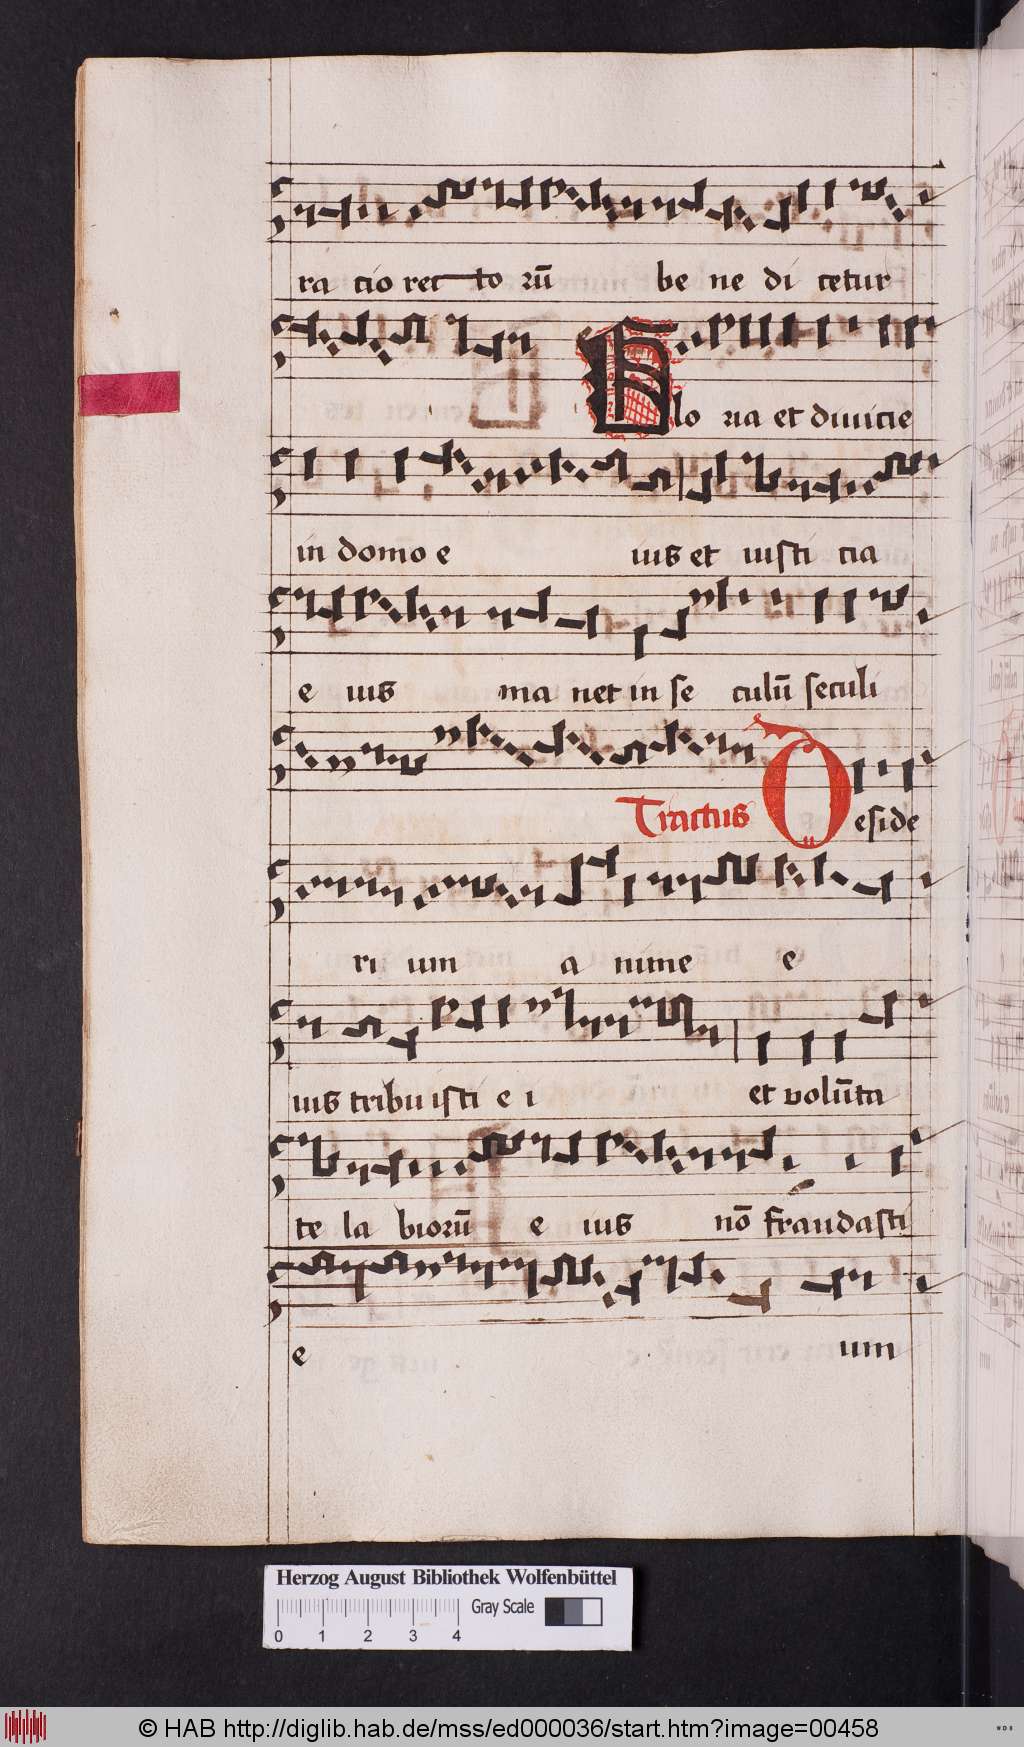 ra tio rec to rū be ne di cetur
Glo ria et divicie
in domo e ius et iusti cia
e ius ma net in se culū seculi
Tractus Deside
ri um a nime e
ius tribu isti e i et volūta
te la biorū e ius nō fraudasti
e um
Herzog August Bibliothek Wolfenbüttel
0 1 2 3 4 Gray Scale
© HAB http://diglib.hab.de/mss/ed000036/start.htm?image=00458